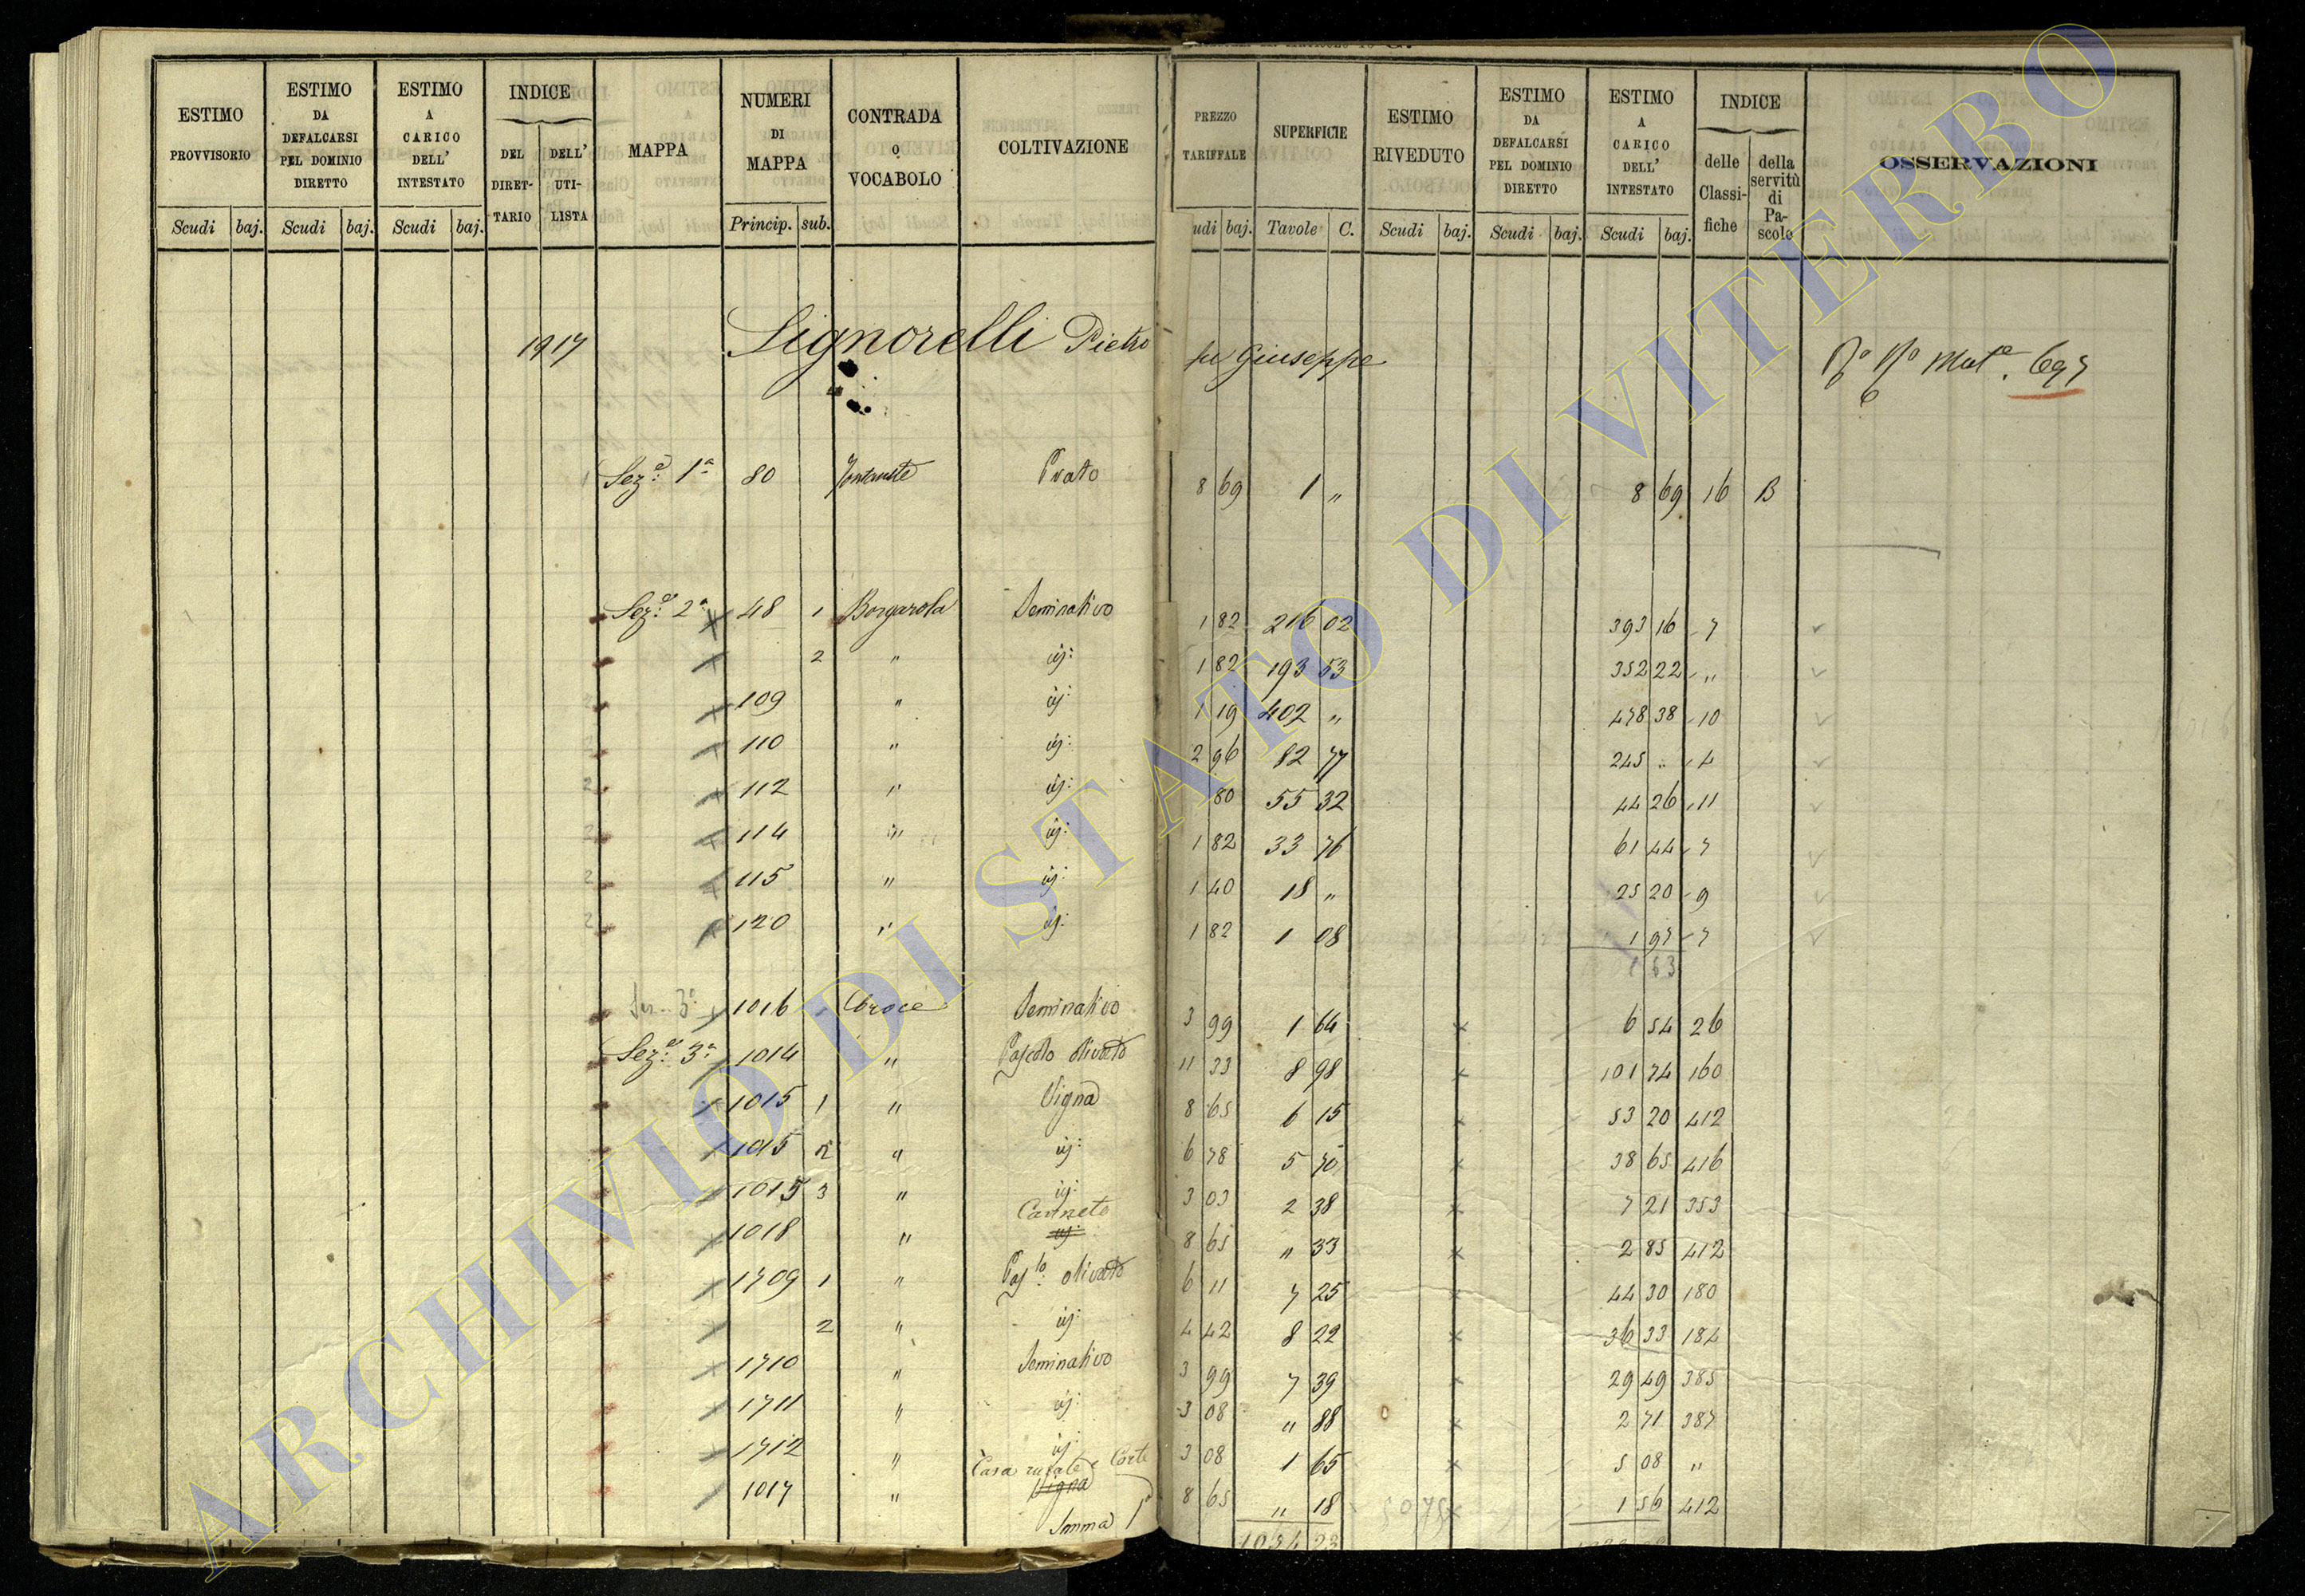 ESTIMO PROVVISORIO | ESTIMO DA DEFALCARSI PEL DOMINIO DIRETTO | ESTIMO A CARICO DELL' INTESTATO | INDICE | MAPPA | NUMERI DI MAPPA | CONTRADA O VOCABOLO | COLTIVAZIONE | PREZZO TARIFFALE | SUPERFICIE | ESTIMO RIVEDUTO | ESTIMO DA DEFALCARSI PEL DOMINIO DIRETTO | ESTIMO A CARICO DELL' INTESTATO | INDICE | OSSERVAZIONI
DEL DIRETTARIO | DELL' UTILISTA | delle Classifiche | della servitù di Pascolo
Scudi | baj. | Scudi | baj. | Scudi | baj. | Princip. | sub. | udi | baj. | Tavole | C. | Scudi | baj. | Scudi | baj. | Scudi | baj.
1917 Signorelli Pietro fu Giuseppe
Sez.e 1a 80 Prato 8 69 1 " 8 69 16 B
Sez.e 2a 48 1 Borgarola Seminativo 1 82 216 02 393 16 7
2 " id: 1 82 193 53 352 22 "
109 " id: 1 19 402 " 478 38 10
110 " id: 2 96 82 77 245 " 4
112 " id: 80 55 32 44 26 11
114 " id: 1 82 33 76 61 44 7
115 " id: 1 40 18 " 25 20 9
120 " id: 1 82 1 08 1 97 7
1016 Croce Seminativo 3 99 1 64 6 54 26
Sez.e 3a 1014 " Pascolo olivato 11 33 8 98 101 74 160
1015 1 " Vigna 8 65 6 15 53 20 412
1015 2 " id: 6 78 5 70 38 65 416
1015 3 " id: 3 03 2 38 7 21 353
1018 " Canneto id: 8 65 " 33 2 85 412
1709 1 " Pas.lo olivato 6 11 7 25 44 30 180
2 " id: 4 42 8 22 36 33 184
1710 " Seminativo 3 99 7 39 29 49 385
1711 " id: 3 08 " 88 2 71 387
1712 " id: 3 08 1 65 5 08 "
1017 " Casa rurale e Corte Vigna 8 65 " 18 1 56 412
Somma
ARCHIVIO DI STATO DI VITERBO